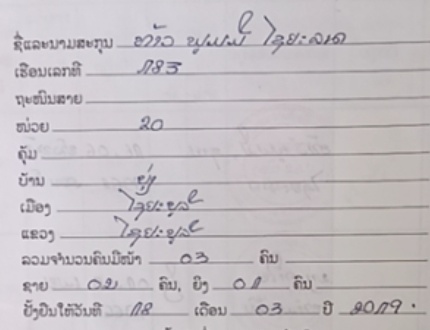 ຊື່ແລະນາມສະກຸນ ທ້າວ ພູມມີ ໄຊຍະລາດ
ເຮືອນເລກທີ 183
ຖະໜົນສາຍ
ໜ່ວຍ 20
ຄຸ້ມ
ບ້ານ
ເມືອງ ໄຊຍະບູລີ
ແຂວງ ໄຊຍະບູລີ
ລວມຈຳນວນຄົນມີໜ້າ 03 ຄົນ
ຊາຍ 02 ຄົນ, ຍິງ 01 ຄົນ
ຢັ້ງຢືນໃຫ້ວັນທີ 18 ເດືອນ 03 ປີ 2019.